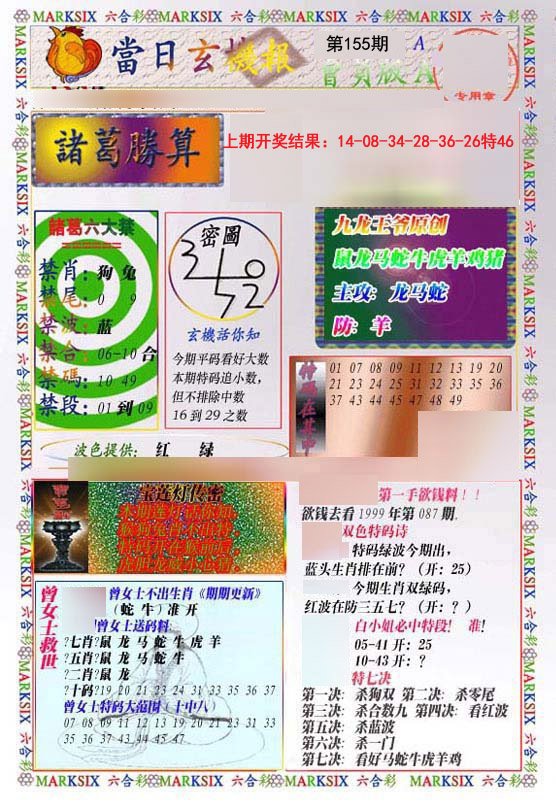 MARKSIX 六合彩 MARKSIX 六合彩 MARKSIX 六合彩 MARKSIX 六合彩
當日玄機報
第155期
A
專用章
諸葛勝算
上期开奖结果：14-08-34-28-36-26特46
諸葛六大禁
禁肖：狗 兔
禁尾：0 9
禁波：蓝
禁合：06-10 合
禁碼：10 49
禁段：01 到 09
密圖
玄機活你知
今期平码看好大数
本期特码追小数，
但不排除中数
16 到 29 之数
九龙王爷原创
鼠龙马蛇牛虎羊鸡猪
主攻：龙马蛇
防：羊
特码在其中
01 07 08 09 11 12 13 19 20
21 23 24 25 31 32 33 35 36
37 43 44 45 47 48 49
波色提供： 红 绿
宝莲灯传密
曾女士救世
曾女士不出生肖《期期更新》
（蛇 牛）准 开
曾女士送码料
?七肖?鼠 龙 马 蛇 牛 虎 羊
?五肖?鼠 龙 马 蛇 牛
?二肖?鼠 龙
?十码?19 20 21 23 24 31 33 35 36 37
曾女士特码大范围（十中八）
07 08 09 11 12 13 19 20 21 23 31 33
35 36 37 43 44 45 47
第一手欲钱料！！
欲钱去看 1999 年第 087 期.
双色特码诗
特码绿波今期出，
蓝头生肖排在前？（开：25）
今期生肖双绿码，
红波在防三五七？（开：？）
白小姐必中特段！ 准！
05-41 开：25
10-43 开：？
特七决
第一决：杀狗双 第二决：杀零尾
第三决：杀合数九 第四决：看红波
第五决：杀蓝波
第六决：杀一门
第七决：看好马蛇牛虎羊鸡
MARKSIX 六合彩 MARKSIX 六合彩 MARKSIX 六合彩 MARKSIX 六合彩